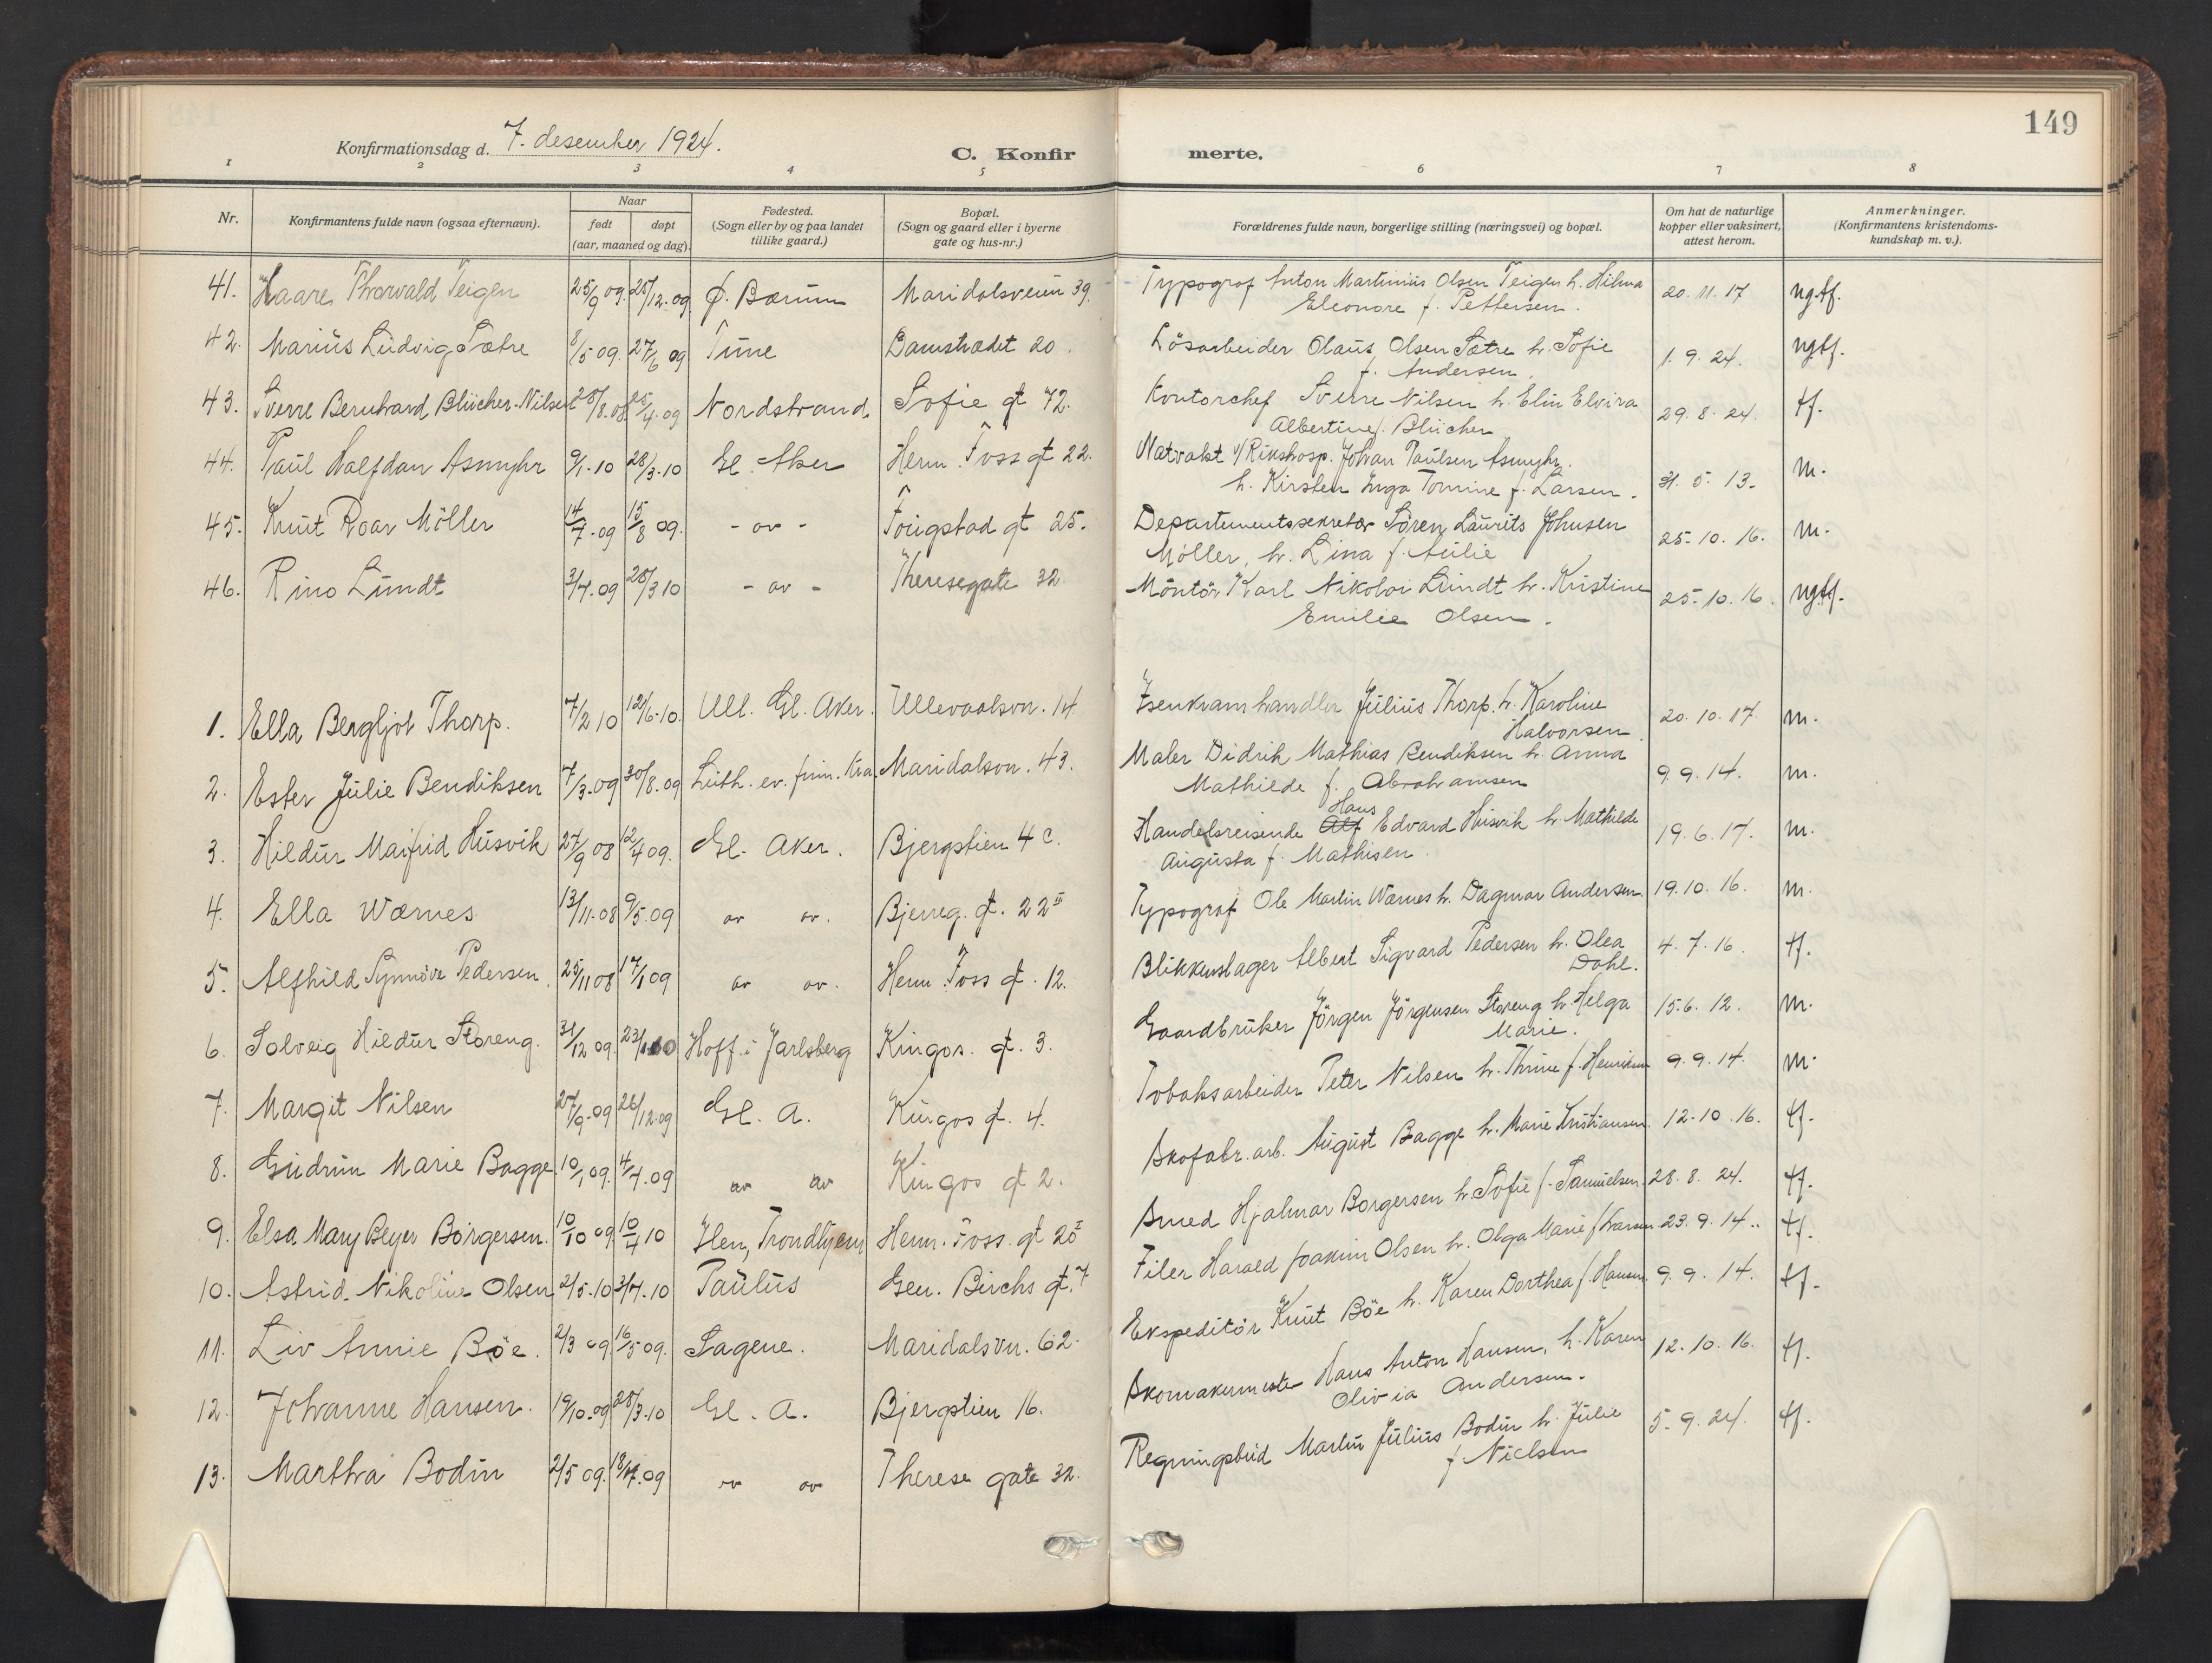 149
Konfirmationsdag d. 7. desember 1924.
C. Konfirmerte.
1 2 3 4 5 6 7 8
Nr.
Konfirmantens fulde navn (ogsaa efternavn).
Naar
født døpt
(aar, maaned og dag).
Fødested.
(Sogn eller by og paa landet
tillike gaard.)
Bopæl.
(Sogn og gaard eller i byerne
gate og hus-nr.)
Forældrenes fulde navn, borgerlige stilling (næringsvei) og bopæl.
Om hat de naturlige
kopper eller vaksinert,
attest herom.
Anmerkninger.
(Konfirmantens kristendoms-
kundskap m. v.).
41. Haare Thorvald Teigen 25/9 09. 25/12.09 Ø. Bærum Maridalsveien 39. Typograf Anton Martinius Olsen Teigen h. Hilma 20.11.17 ngtf.
Eleonore f. Pettersen.
42. Marius Ludvig Sætre 8/5 09. 27/6 09 Tune Damstrædet 20. Lösarbeider Olaus Olsen Sætre h. Sofie 1.9.24. ngtf.
f. Andersen.
43. Sverre Bernhard Blücher-Nilsen 4.09 Nordstrand. Sofie gt 72. Kontorchef Sverre Nilsen h. Elin Elvira 29.8.24. tf.
Albertine f. Blücher
44. Paul Halfdan Asmyhr 9/1.10 28/3.10 Gl. Aker Herm. Foss gt 22. Natvakt v/Rikshosp. Johan Paulsen Asmyhr. 31.5.13. m.
h. Kirsten Inga Tomine f. Larsen.
45. Knut Roar Möller 14/7.09 15/8 09. - av - Fougstad gt 25. Departementssekretær Sören Laurits Johnsen 25.10.16. m.
Möller, h. Lina f. Aulie
46. Rino Lundt 3/4.09 28/3 10 - av - Theresegate 32. Montör Karl Nikolai Lundt h. Kristine 25.10.16. ngtf.
Emilie Olsen.
1. Ella Bergljot Thorp. 7/2 10 12/6.10. Ull. Gl. Aker. Ullevaalsvn. 14 Isenkramhandler Julius Thorp. h. Karoline 20.10.17. m.
Halvorsen.
2. Ester Julie Bendiksen 7/3.09 30/8.09 Luth. ev. frim. Kra. Maridalsvn. 43. Maler Didrik Mathias Bendiksen h. Anna 9.9.14. m.
Mathilde f. Abrahamsen
3. Hildur Maifrid Husvik 27/9 08 12/4 09. Gl. Aker. Bjergstien 4 c. Handelsreisende Alf Hans Edvard Husvik h. Mathilde 19.6.17. m.
Augusta f. Mathisen.
4. Ella Wærnes 13/11.08 9/5.09 av av. Bjerreg. gt. 22 III Typograf Ole Martin Wærnes h. Dagmar Andersen. 19.10.16. m.
5. Alfhild Synnöve Pedersen. 25/11 08 17/1 09 av av. Herm. Foss gt. 12. Blikkenslager Albert Sigvard Pedersen h. Olea 4.7.16. tf.
Dahl.
6. Solveig Hildur Storeng. 31/12 09. Hoff i Jarlsberg Kingos. gt. 3. Gaardbruker Jörgen Jörgensen Storeng h. Helga 15.6.12. m.
Marie.
7. Margit Nilsen 27/9.09 26/12.09 Gl. A. Kingos gt. 4. Tobaksarbeider Peter Nilsen h. Thrine f. Henriksen 9.9.14. m.
8. Gudrun Marie Bagge. 10/1 09. 4/4.09 av av Kingos gt 2. Skofabr. arb. August Bagge h. Marie Kristiansen. 12.10.16. tf.
9. Elsa Mary Beyer Borgersen. 10/10 09 10/4 10 Ilen, Trondhjem Herm. Foss. gt 20 I Smed Hjalmar Borgersen h. Sofie f. Samuelsen. 28.8.24. tf.
10. Astrid Nikoline Olsen 2/5.10 3/7.10 Paulus Gen. Birchs gt. 7 Filer Harald Joakim Olsen h. Olga Marie f. Larsen 23.9.14.. tf.
11. Liv Annie Böe. 2/3 09. 16/5 09. Sagene. Maridalsvn. 62. Ekspeditör Knut Böe h. Karen Dorthea f. Hansen 9.9.14. tf.
12. Johanne Hansen. 19/10.09 28/3.10 Gl. A. Bjergstien 16. Skomakermester Hans Anton Hansen, h. Karen 12.10.16. tf.
Olivia Andersen.
13. Martha Bodin 2/5 09. 18/7.09 av av Therese gate 32. Regningsbud Martin Julius Bodin h. Julie 5.9.24. tf.
f Nielsen